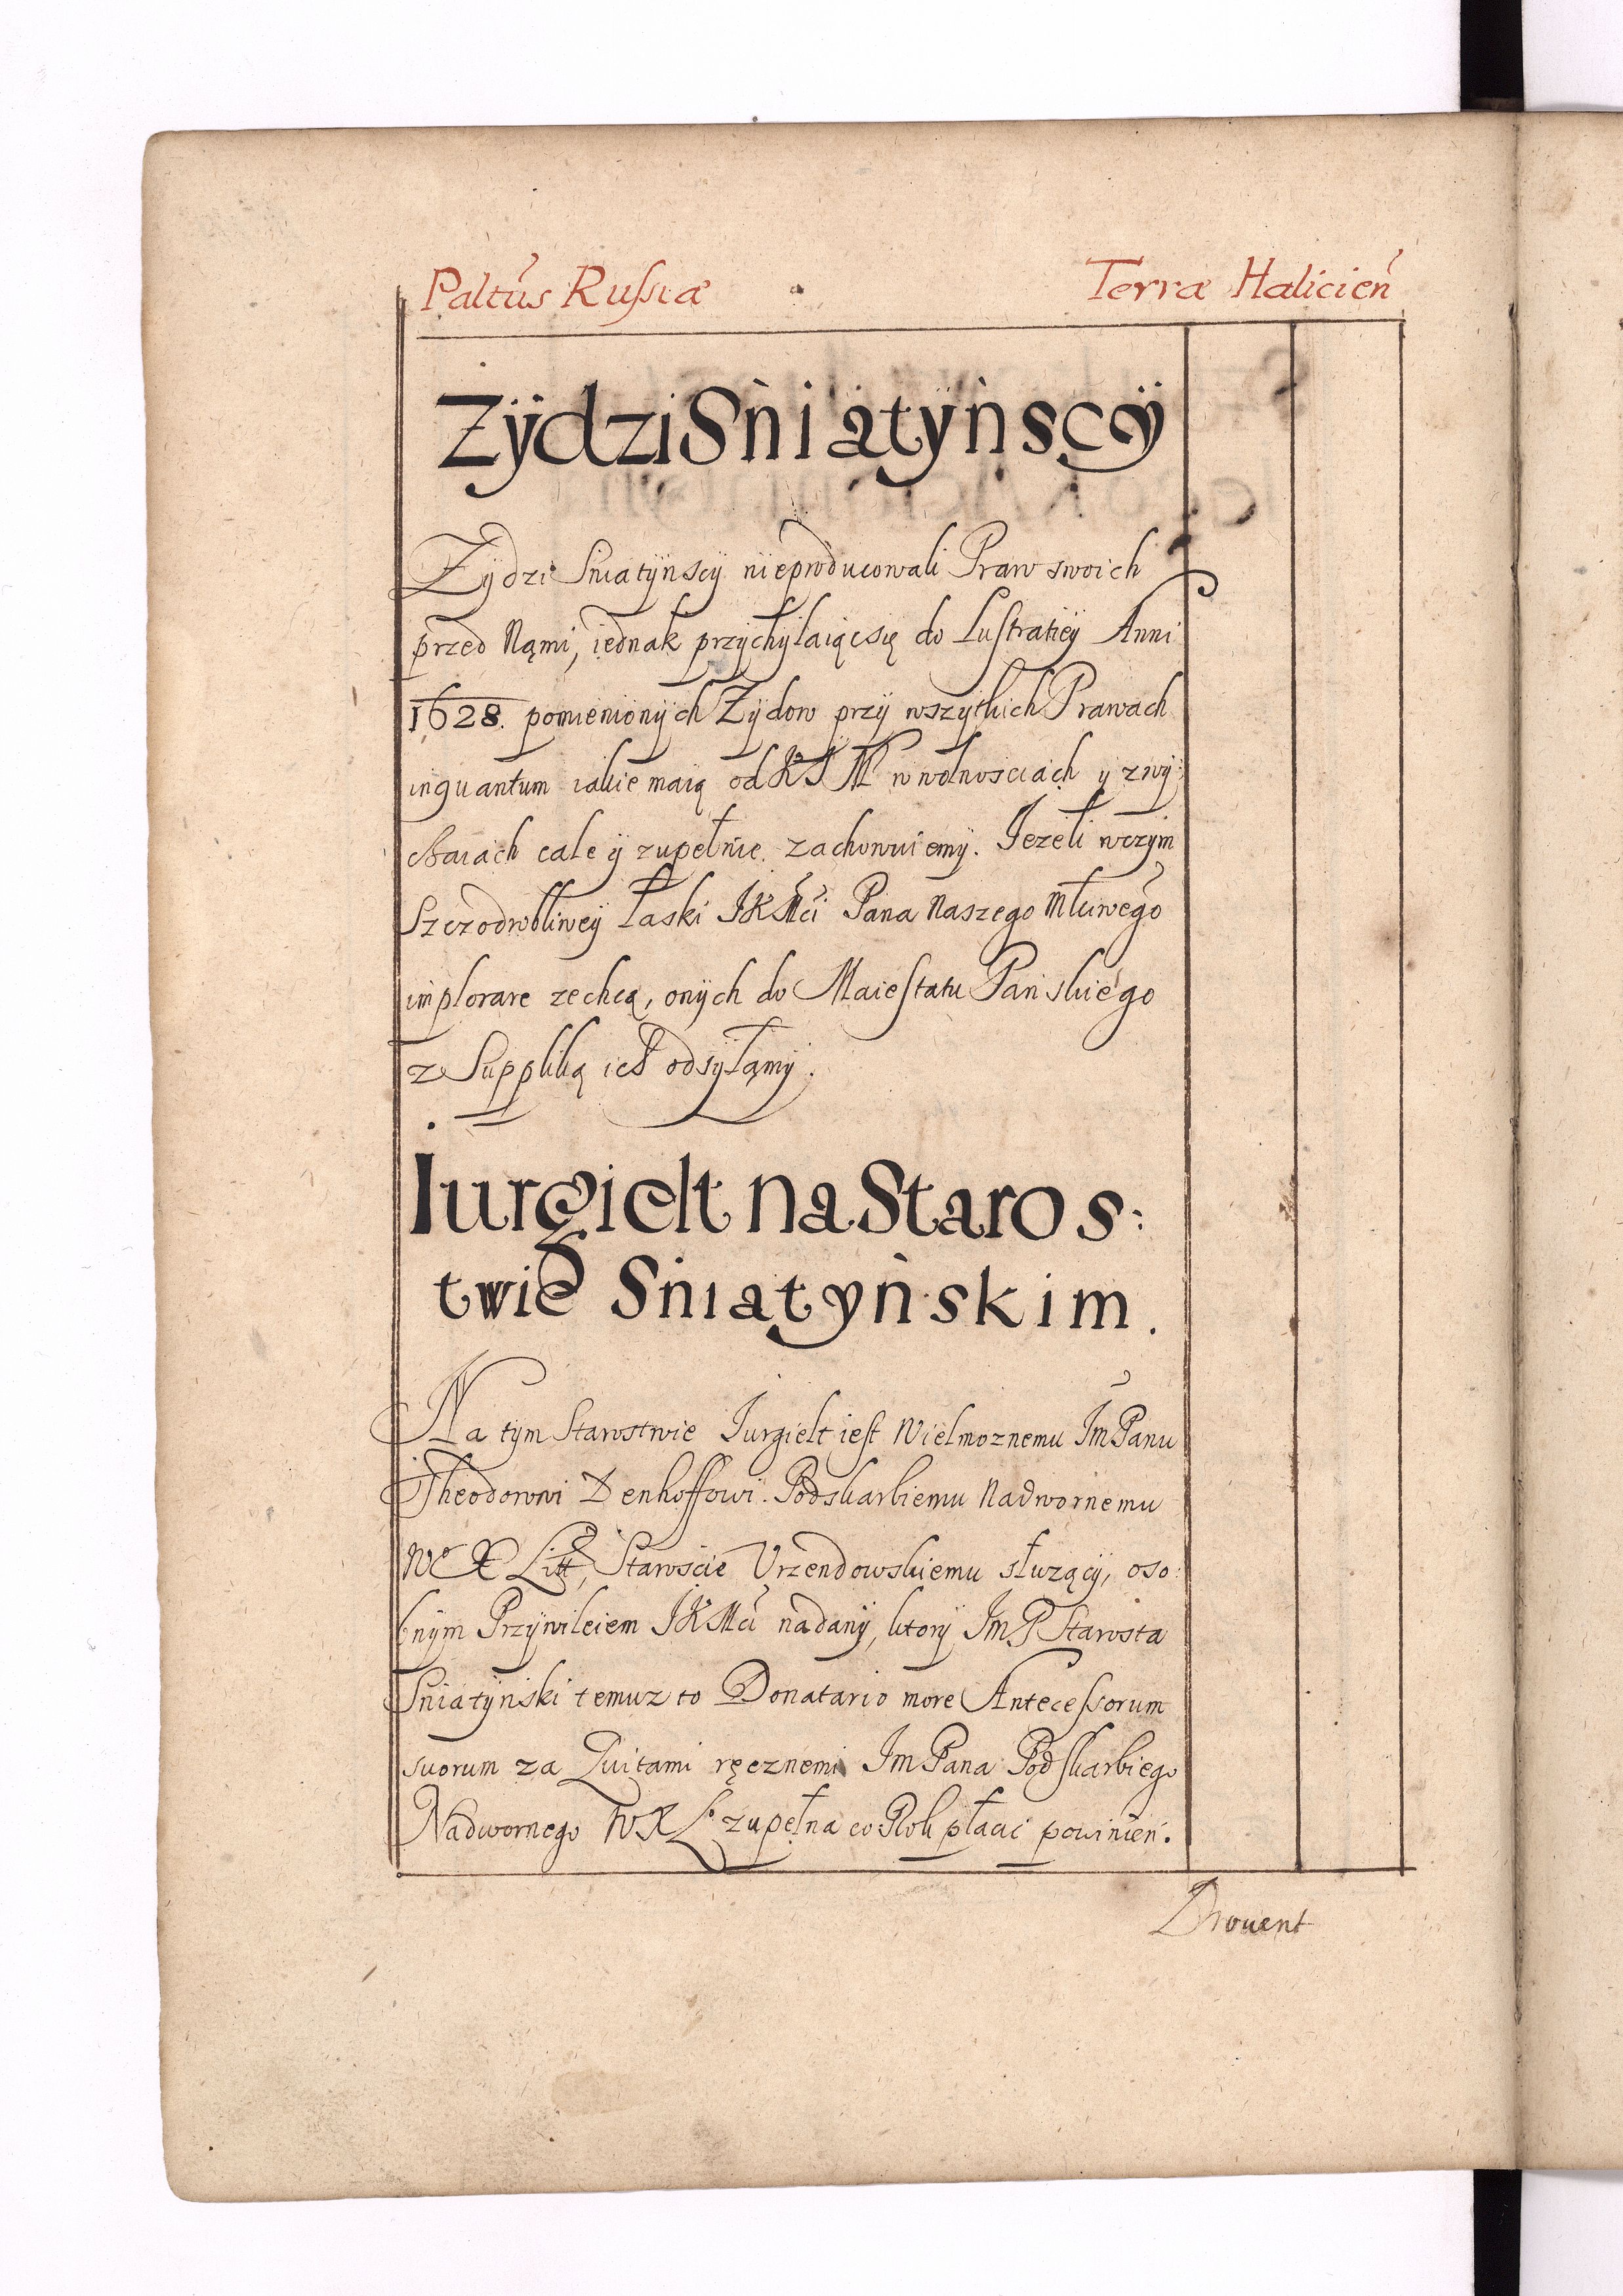 Paltus Russiæ Terræ Halicien
Żÿdzi Sńiatyńscÿ
Zÿdzi Sniatÿnscÿ nieproducowali Praw swoich
przed Nąmi, iednak przÿchÿlaiącsię do Lustratieÿ Anni
1628. pomienionÿch Zÿdow przÿ wszytkich Prawach
inquantum iakie maią od KJM w wolnosciach ÿ zwÿ:
czaiach cale ÿ zupełnie zachowuiemÿ. Jezeli wczÿm
Szczodrobliwey Łaski JKMći Pana Naszego Młłiwego
implorare zechcą, onÿch do Maiestatu Pańskiego
z Suppliką ich odsÿłamÿ.
Iurgielt na Staros:
twie Sńiatyńskim.
Na tym Starostwie Iurgielt iest Wielmoznemu Jm Panu
Theodorowi Denhoffowi. Podskarbiemu Nadwornemu
W X Litt, Starośćie Vrzendowskiemu słuzącÿ, oso:
bnÿm Przÿwileiem JKMći nadanÿ, ktorÿ Jm P Starosta
Sniatÿnski temuz to Donatario more Antecessorum
suorum za Quitami ręcznemi Jm Pana Podskarbiego
Nadwornego WXL zupełna co Rok płacić powinień.
Prouent